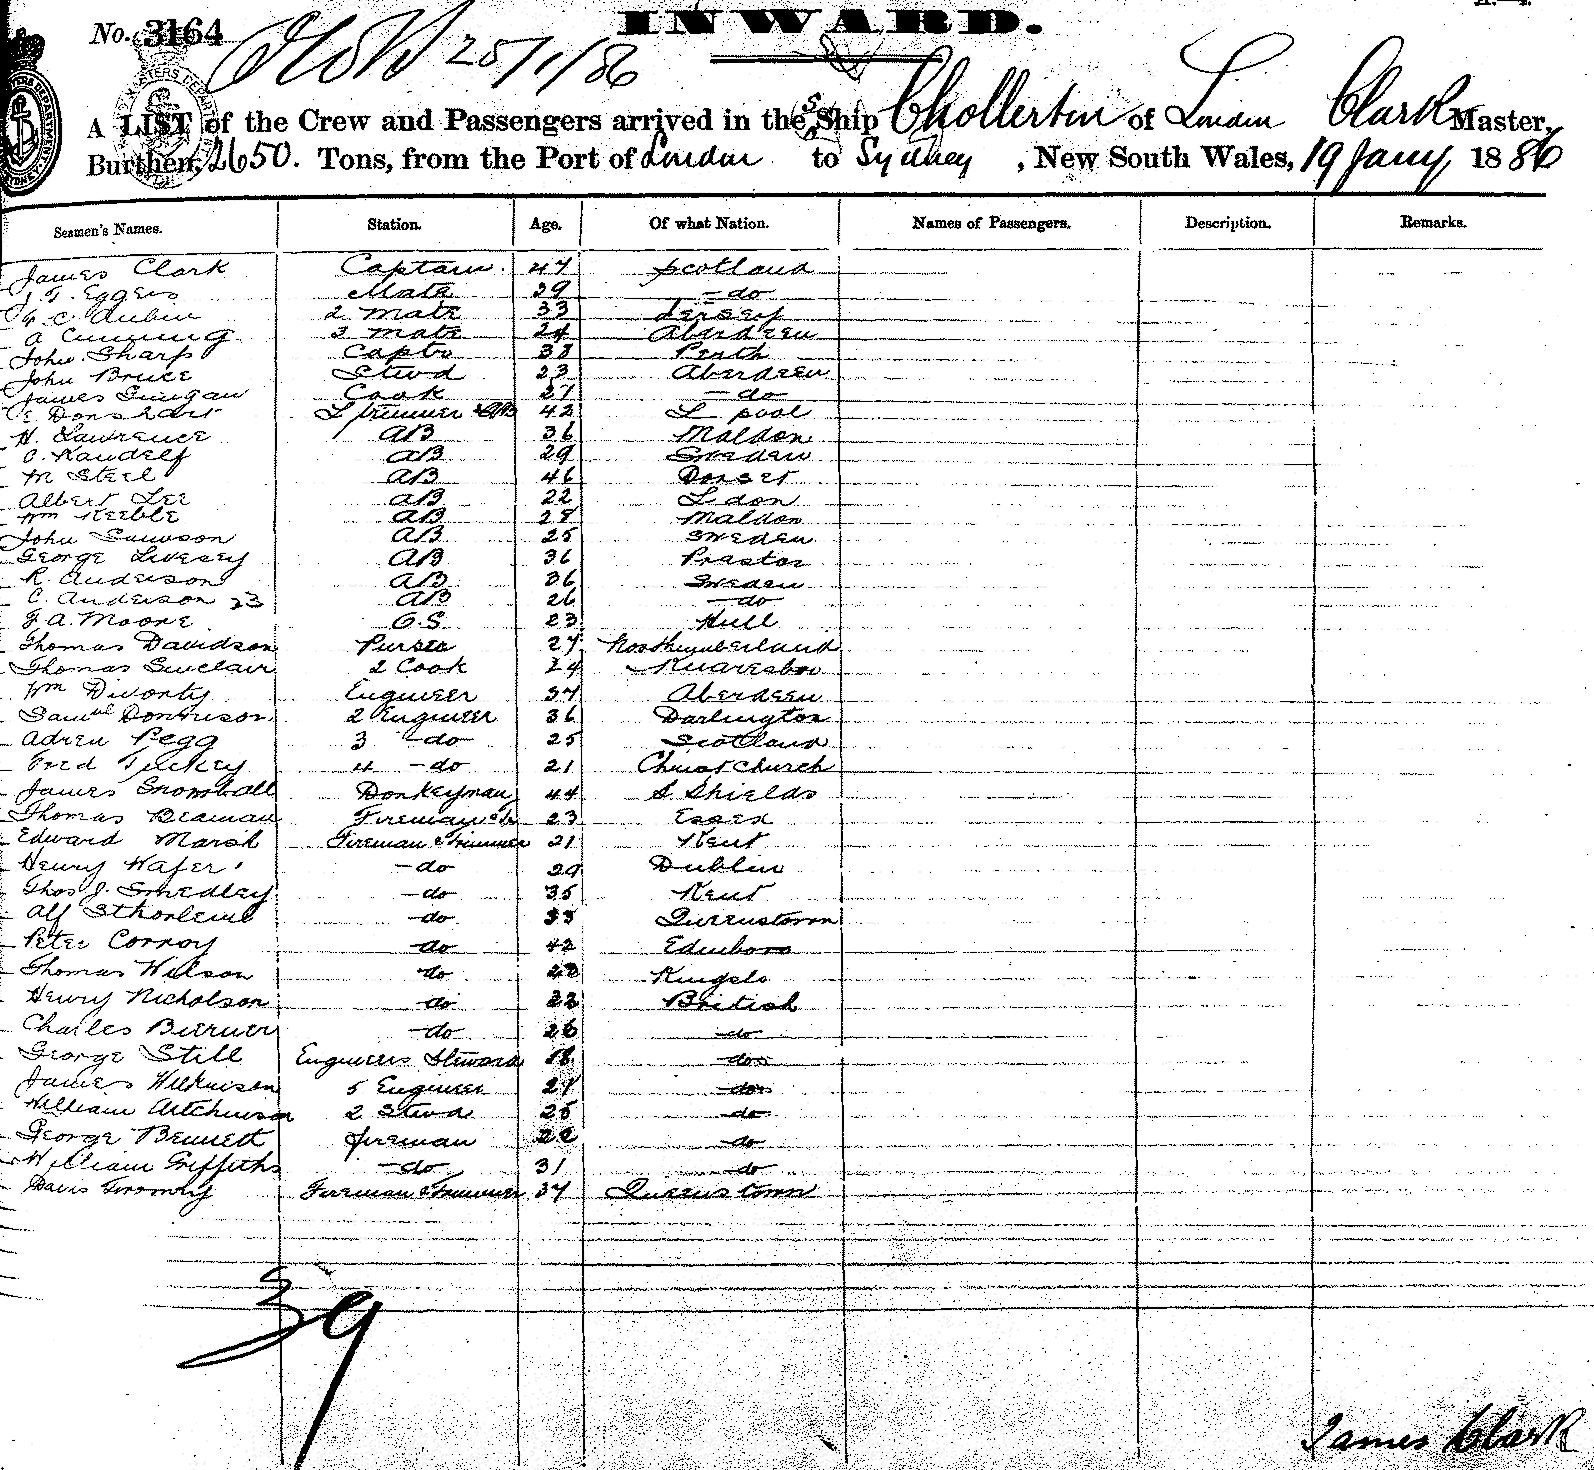 INWARD.
No. 3164
25/1/86
A LIST of the Crew and Passengers arrived in the S.S. Ship Chollerton of London Clark Master,
Burthen, 2650. Tons, from the Port of London to Sydney, New South Wales, 19 Jany 1886
Seamen's Names. Station. Age. Of what Nation. Names of Passengers. Description. Remarks.
James Clark Captain 47 Scotland
J. T. Eggers Mate 39 do
C. Aubin 2 Mate 33 Jersey
A Cumming 3 Mate 24 Aberdeen
John Sharp 38 Perth
John Bruce Stwd 23 Aberdeen
James Cook 27 do
L trimmer & AB 42 L pool
H. Lawrence AB 36 Maldon
AB 29 Sweden
M Steel AB 46 Dorset
Albert Lee AB 22 L don
Wm Keeble AB 28 Maldon
John AB 25 Sweden
George Livesey AB 36 Preston
R. Anderson AB 36 Sweden
C. Anderson 23 AB 26 do
F. A. Moore O.S. 23 Hull
Thomas Davidson Purser 27 Northumberland
Thomas Sinclair 2 Cook 24 Knaresboro
Wm Divorty Engineer 34 Aberdeen
Samuel 2 Engineer 36 Darlington
Adrew Pegg 3 do 25 Scotland
Fred Tuckey 4 do 21 Christ Church
James Snowball Donkeyman 44 S Shields
Thomas Beaman Fireman 23 Essex
Edward Marsh Fireman & Trimmer 21 Kent
Henry Wafer do 29 Dublin
Thos J. Smedley do 35 Kent
Alf do 33 Queenstown
Peter Conroy do 42 Edinboro
Thomas Wilson do
Henry Nicholson do 22 British
Charles do 26 do
George Still Engineers Steward 18 do
James Wilkinson 5 Engineer 27 do
William Aitchinson 2 Stwd 25 do
George Bennett Fireman 22 do
William Griffiths do 31 do
Davis Fireman & Trimmer 37 Queenstown
39
James Clark